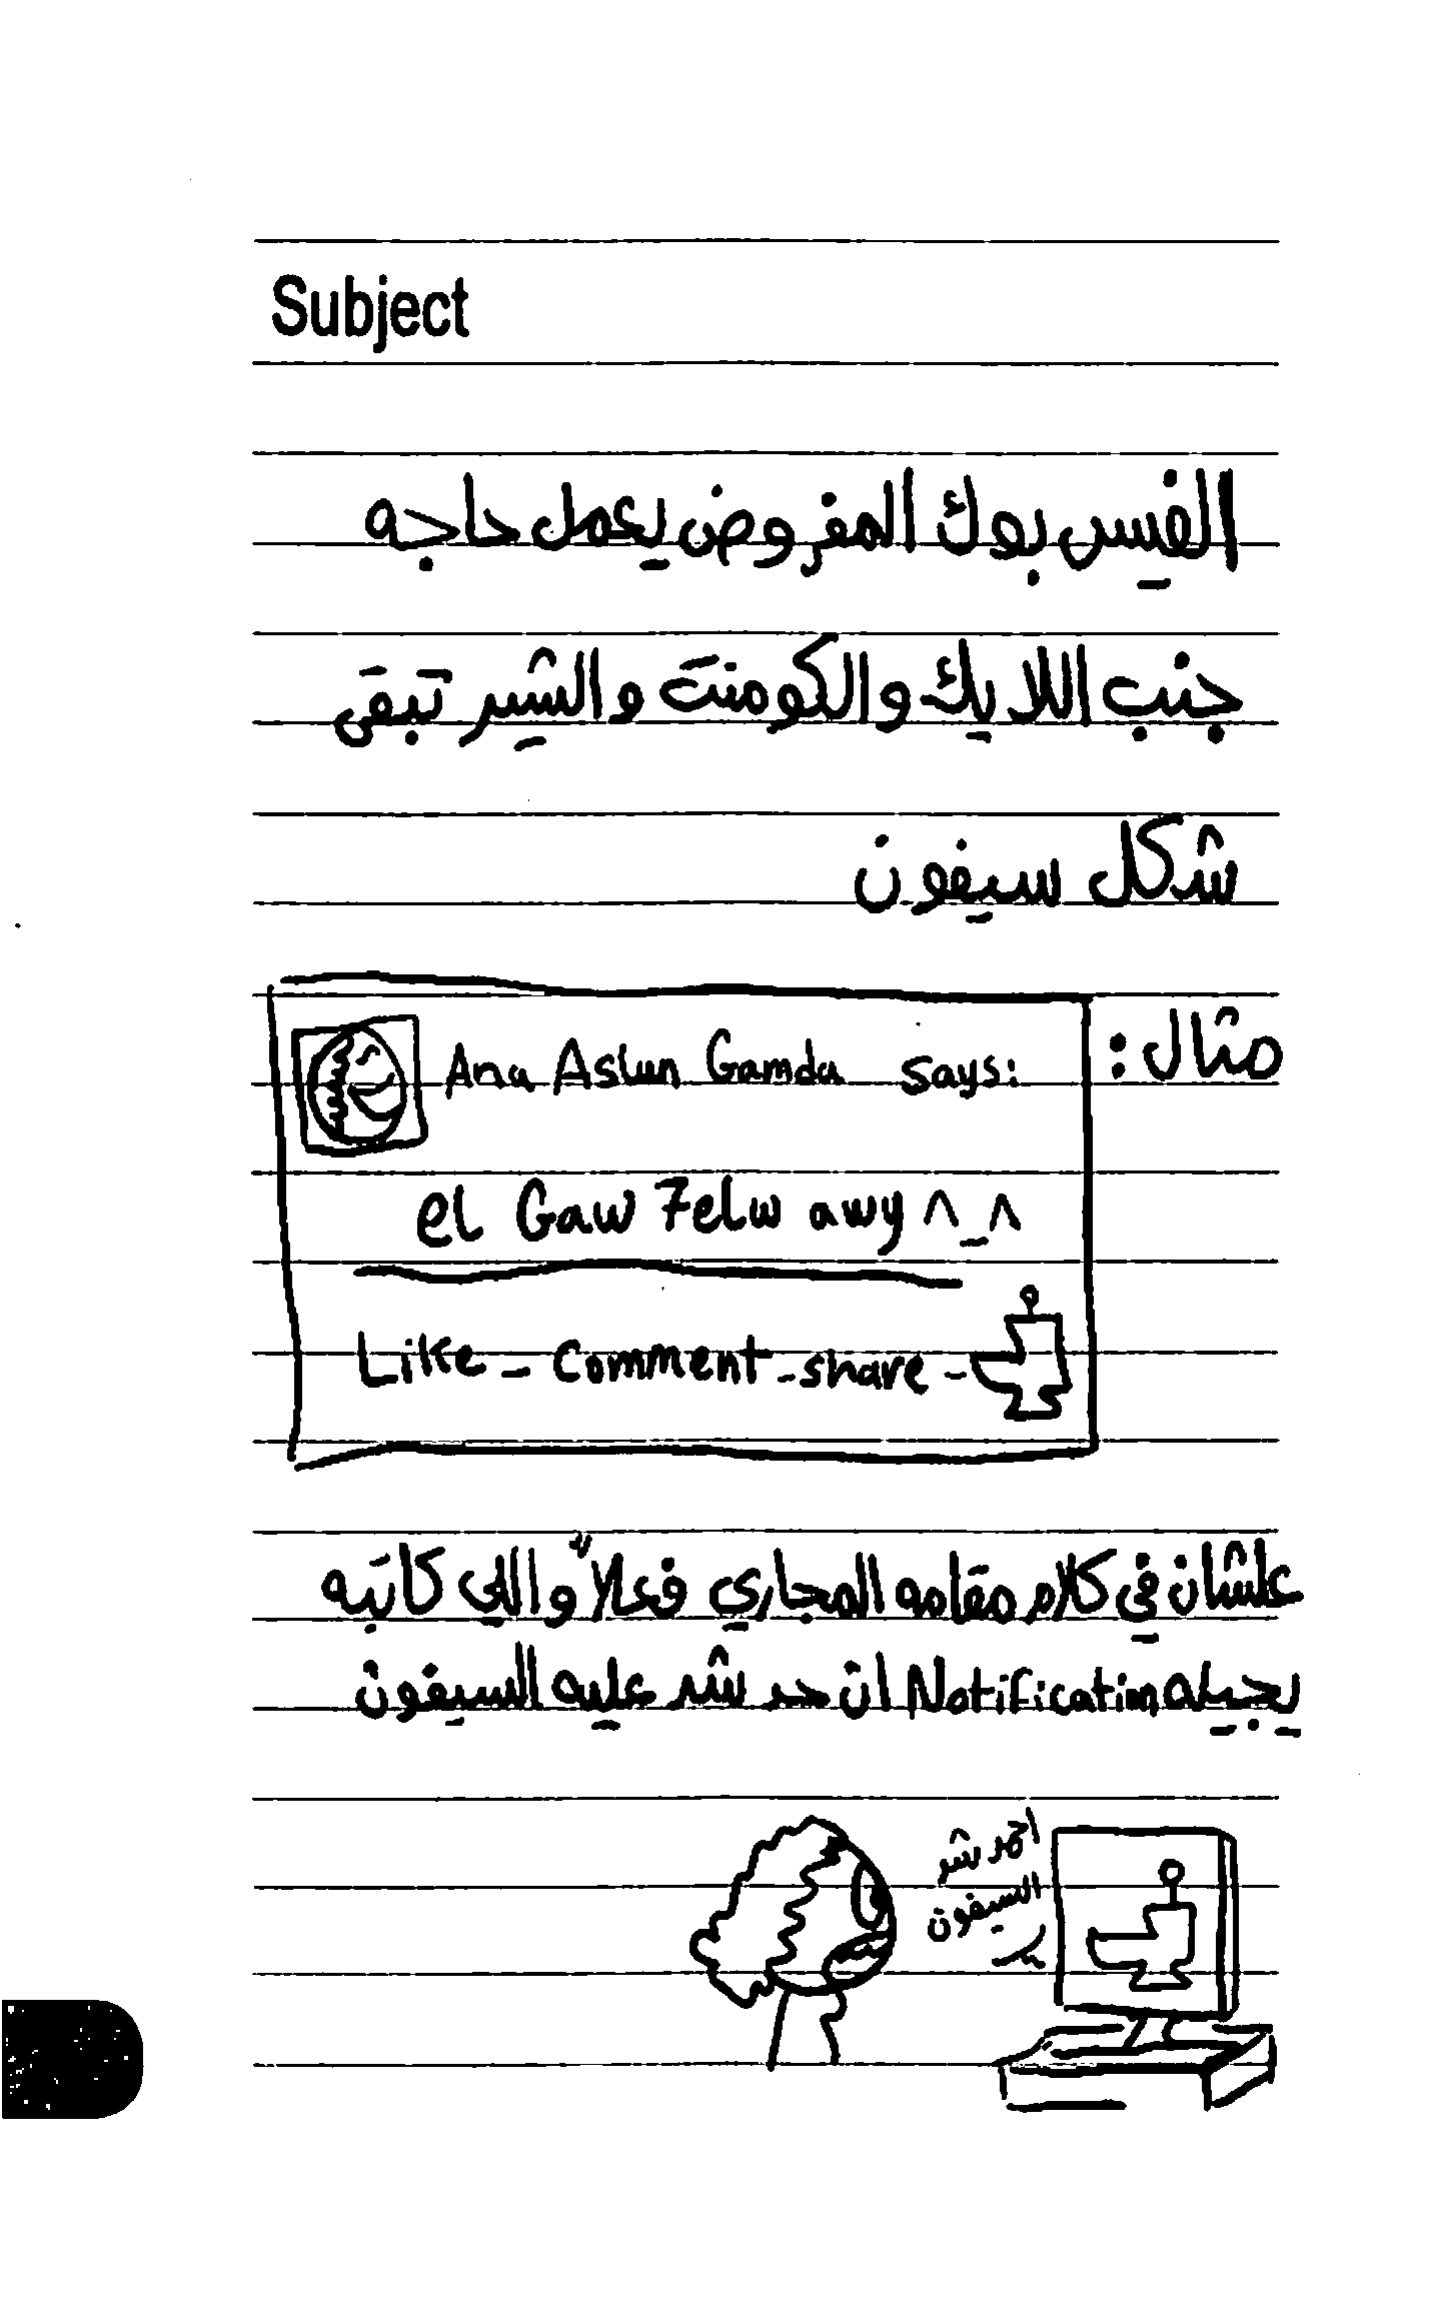 Subject
الفيس بوك المفروض يعمل حاجه
جنب اللايك والكومنت والشير تبقى
شكل سيفون
مثال :
Ana Aslun Gamda says:
el Gaw 7elw awy ^_^
Like - Comment - share -
علشان في كلام مقامه المجاري فعلاً واللي كاتبه
يجيله Notification ان حد شد عليه السيفون
احمد شد
السيفون